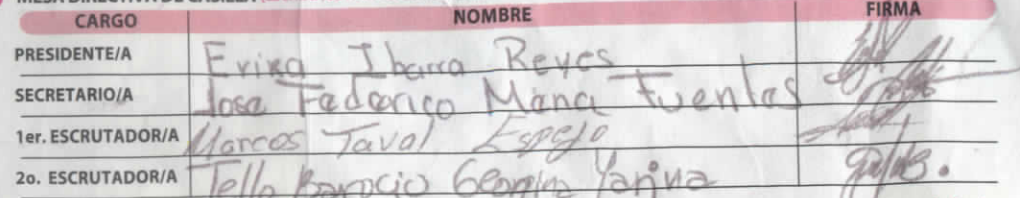 CARGO NOMBRE FIRMA
PRESIDENTE/A Erika Ibarra Reyes
SECRETARIO/A Jose Federico Maria Fuentes
1er. ESCRUTADOR/A Marcos Taval Espejo
2o. ESCRUTADOR/A Tello Barocio Georgina Yanina